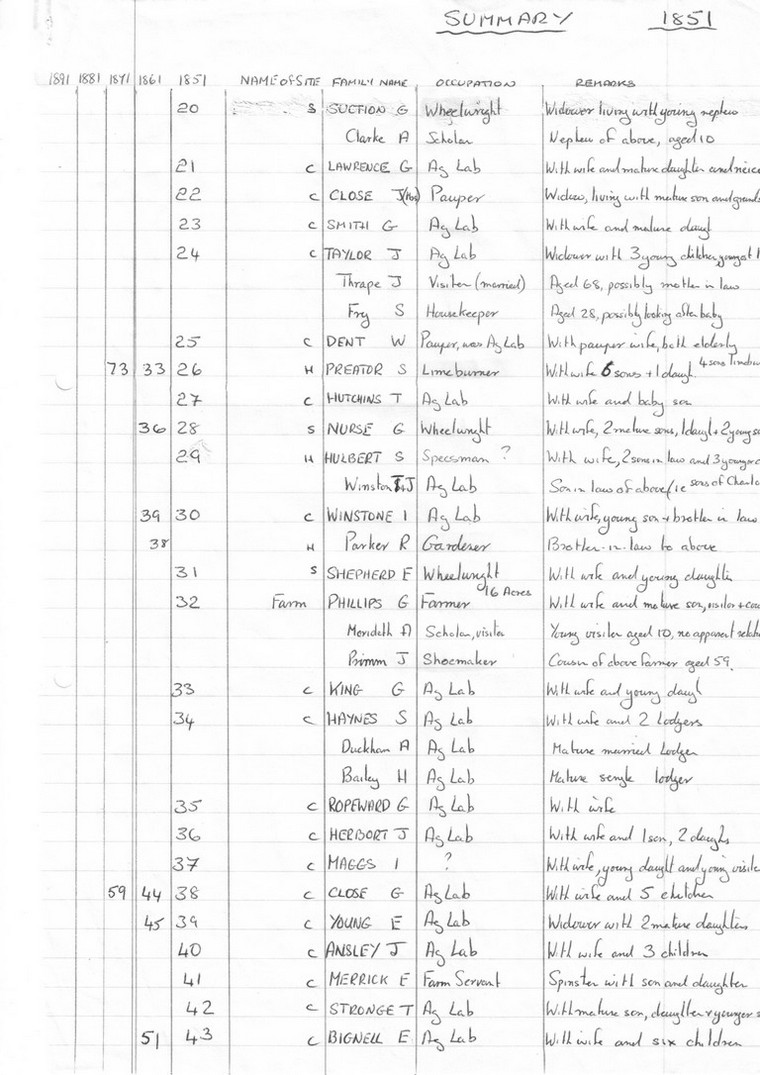 SUMMARY 1851
1891 1881 1871 1861 1851 NAME OF SITE FAMILY NAME OCCUPATION REMARKS
20 S SUCTION G Wheelwright Widower living with young nephew
Clarke A Scholar Nephew of above, aged 10
21 C LAWRENCE G Ag Lab With wife and mature daughter and neice
22 C CLOSE J (Mrs) Pauper Widow, living with mature son and grands
23 C SMITH G Ag Lab With wife and mature daugt
24 C TAYLOR J Ag Lab Widower with 3 young children, youngest 1
Thrape J Visitor (married) Aged 68, possibly mother in law
Fry S Housekeeper Aged 28, possibly looking after baby
25 C DENT W Pauper, was Ag Lab With pauper wife, both elderly
73 33 26 H PREATOR S Limeburner With wife 6 sons + 1 daugt. 4 sons limebur
27 C HUTCHINS T Ag Lab With wife and baby son
36 28 S NURSE G Wheelwright With wife, 2 mature sons, 1 daugt + 2 young so
29 H HULBERT S Specsman ? With wife, 2 sons in law and 3 younger c
Winston J Ag Lab Son in law of above (ie sons of Charlo
39 30 C WINSTONE I Ag Lab With wife, young son + brother in law
38 H Parker R Gardener Brother-in-law to above
31 S SHEPHERD E Wheelwright With wife and young daughter
32 Farm PHILLIPS G Farmer 16 Acres With wife and mature son, visitor + cou
Merideth A Scholar, visitor Young visitor aged 10, no apparent relati
Brimm J Shoemaker Cousin of above farmer aged 59.
33 C KING G Ag Lab With wife and young daugt
34 C HAYNES S Ag Lab With wife and 2 lodgers
Duckham A Ag Lab Mature married Lodger
Bailey H Ag Lab Mature single lodger
35 C ROPEWARD G Ag Lab With wife
36 C HERBORT J Ag Lab With wife and 1 son, 2 daughs
37 C MAGGS I ? With wife, young daught and young visito
59 44 38 C CLOSE G Ag Lab With wife and 5 children
45 39 C YOUNG E Ag Lab Widower with 2 mature daughters
40 C ANSLEY J Ag Lab With wife and 3 children
41 C MERRICK E Farm Servant Spinster with son and daughter
42 C STRONGE T Ag Lab With mature son, daughter + younger s
51 43 C BIGNELL E Ag Lab With wife and six children